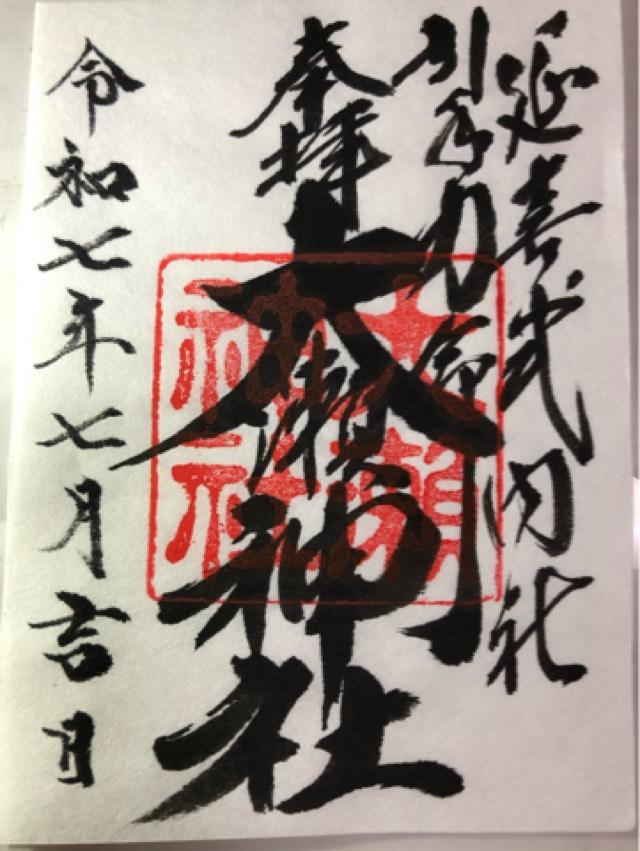 延喜式内社
引手力命
奉拝
大瀬神社
大瀬神社
令和七年七月吉日